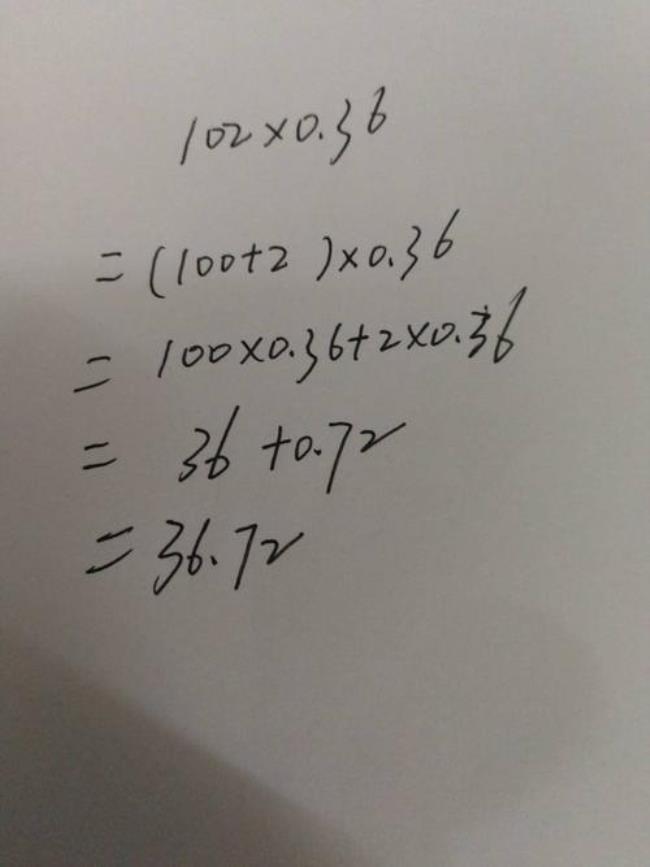 102×0.36
=(100+2)×0.36
=100×0.36+2×0.36
=36+0.72
=36.72